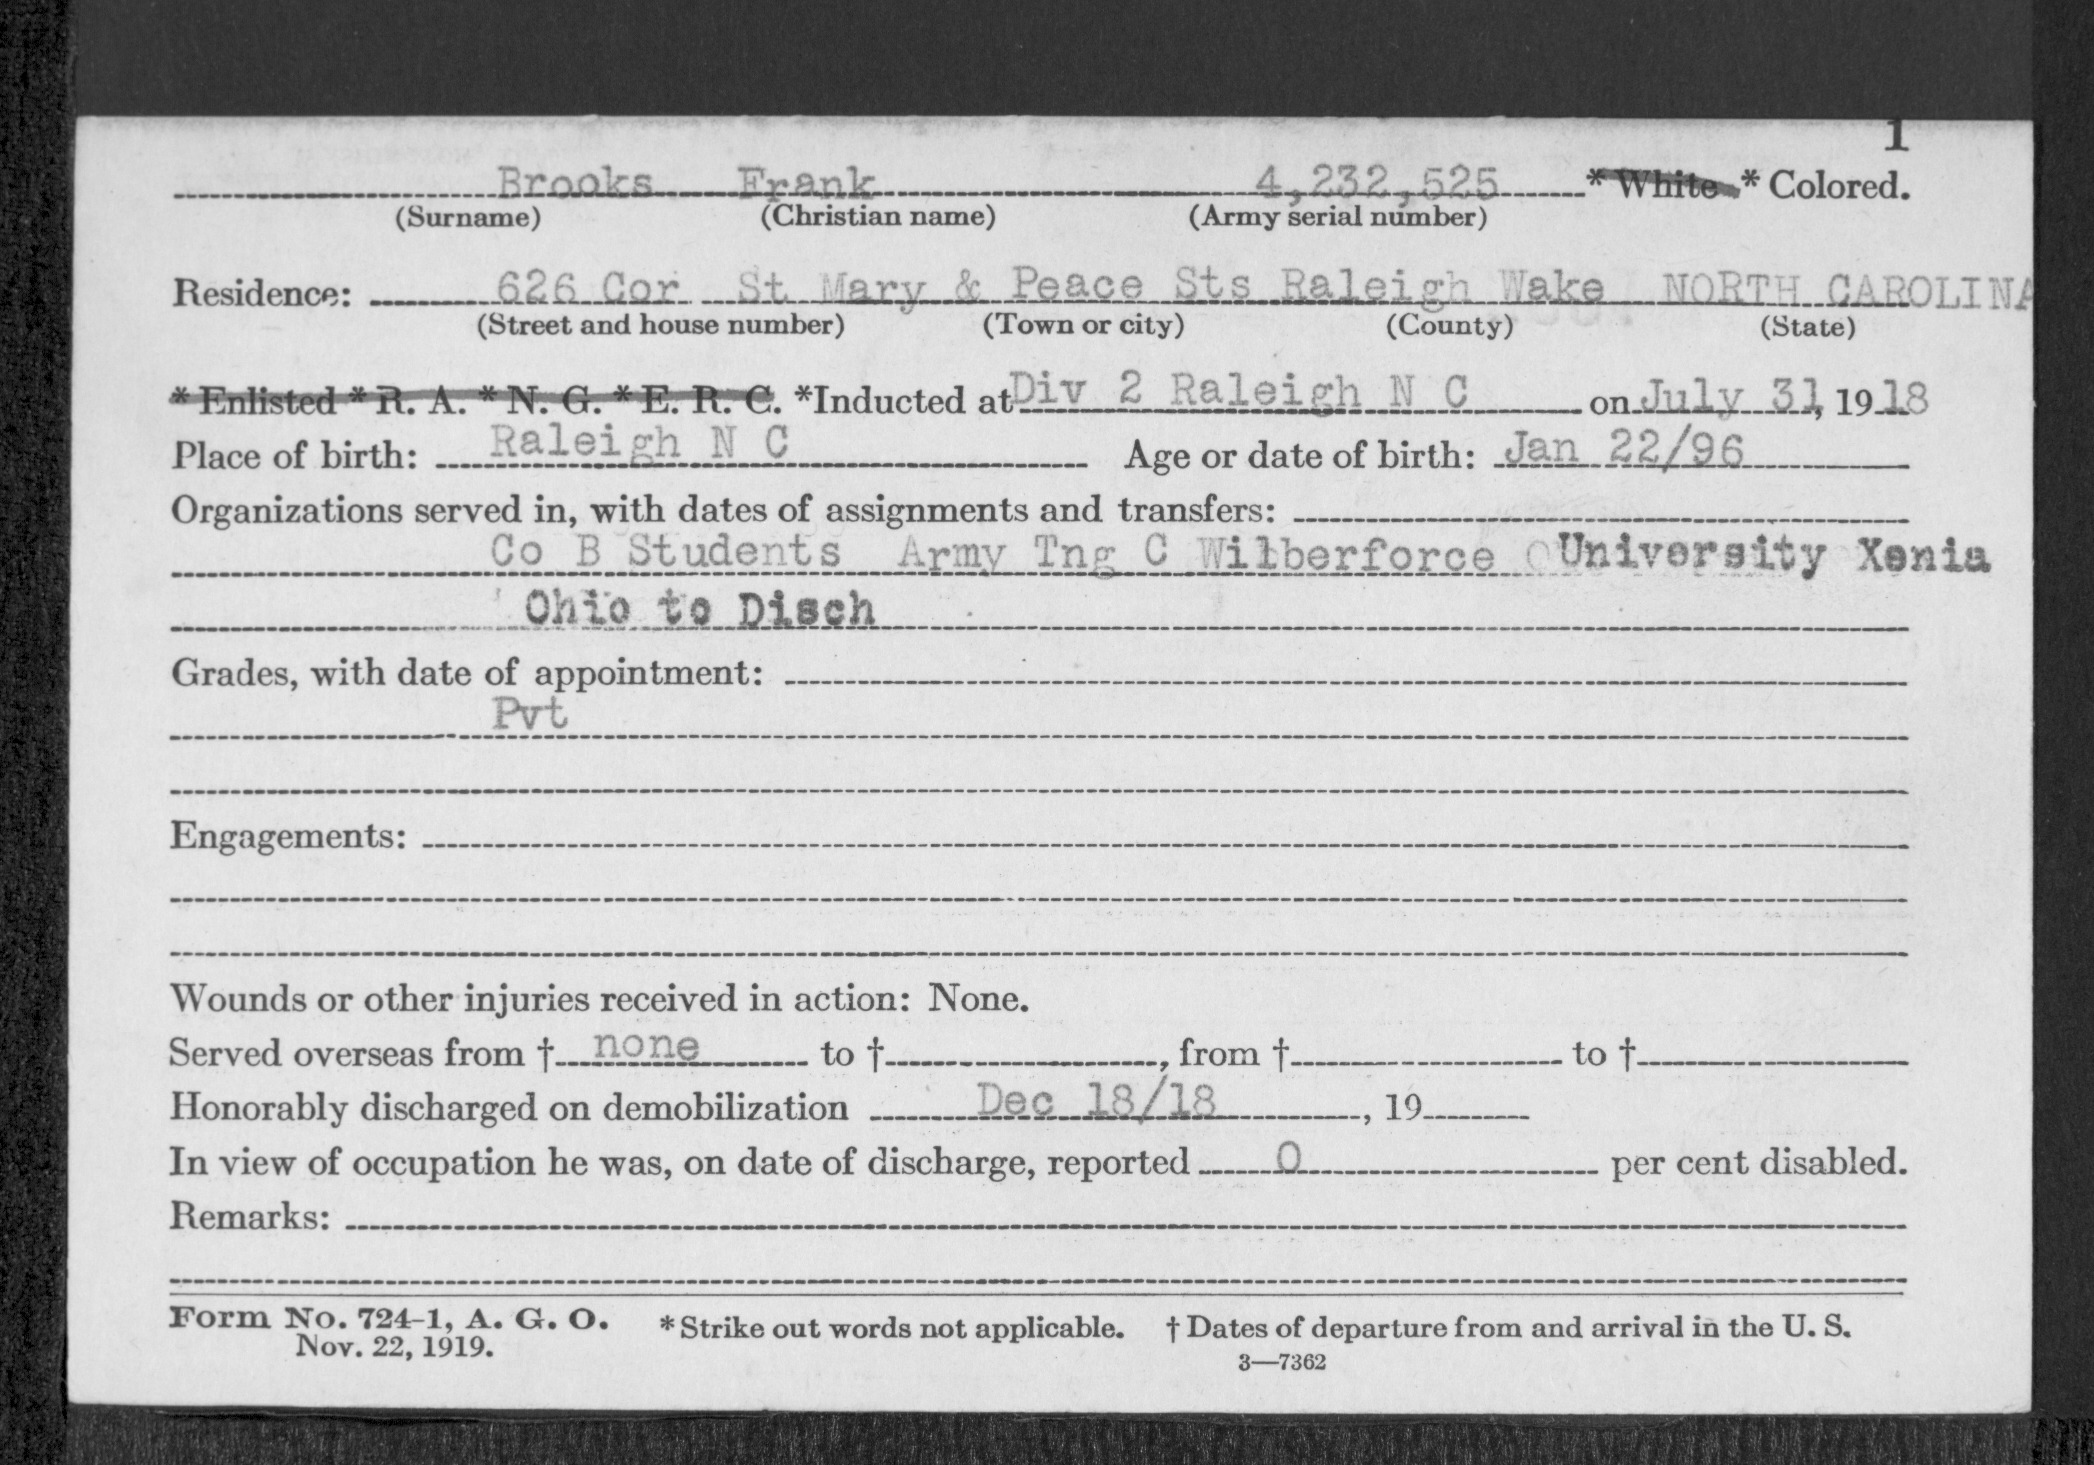 1
Brooks Frank 4,232,525 * White * Colored.
(Surname) (Christian name) (Army serial number)
Residence: 626 Cor St Mary & Peace Sts Raleigh Wake NORTH CAROLINA
(Street and house number) (Town or city) (County) (State)
* Enlisted * R. A. * N. G. * E. R. C. *Inducted at Div 2 Raleigh N C on July 31, 1918
Place of birth: Raleigh N C Age or date of birth: Jan 22/96
Organizations served in, with dates of assignments and transfers:
Co B Students Army Tng C Wilberforce University Xenia
Ohio to Disch
Grades, with date of appointment:
Pvt
Engagements:
Wounds or other injuries received in action: None.
Served overseas from † none to †, from † to †
Honorably discharged on demobilization Dec 18/18, 19
In view of occupation he was, on date of discharge, reported 0 per cent disabled.
Remarks:
Form No. 724-1, A. G. O. * Strike out words not applicable. † Dates of departure from and arrival in the U. S.
Nov. 22, 1919.
3—7362